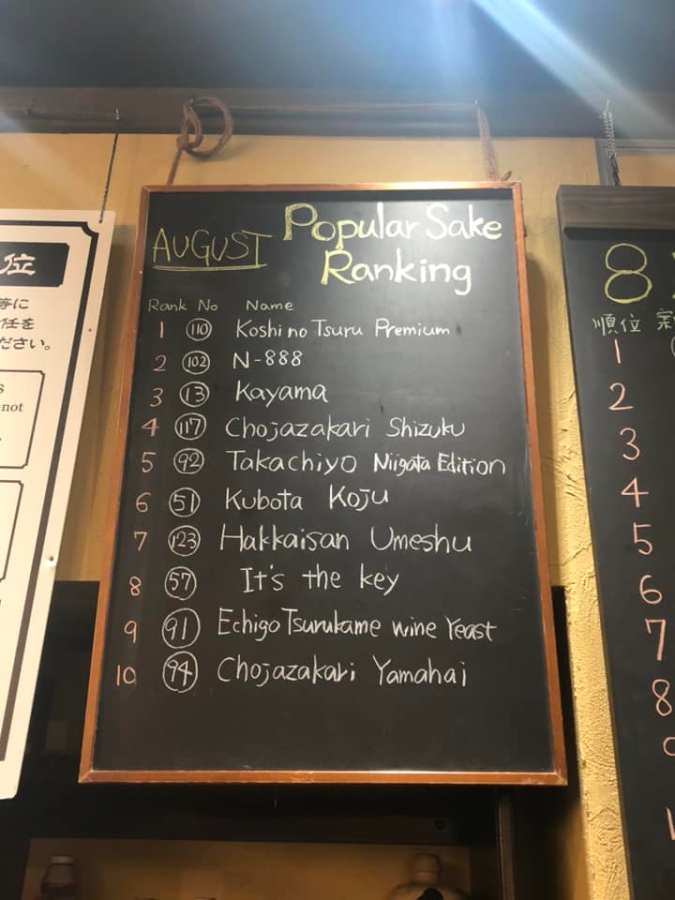 AUGUST Popular Sake
Ranking
Rank No Name
1 110 Koshi no Tsuru Premium
2 102 N-888
3 13 Kayama
4 117 Chojazakari Shizuku
5 92 Takachiyo Niigata Edition
6 51 Kubota Koju
7 123 Hakkaisan Umeshu
8 57 It's the key
9 91 Echigo Tsurukame wine Yeast
10 94 Chojazakari Yamahai
位
等に
任を
ださい。
not
8
順位
1
2
3
4
5
6
7
8